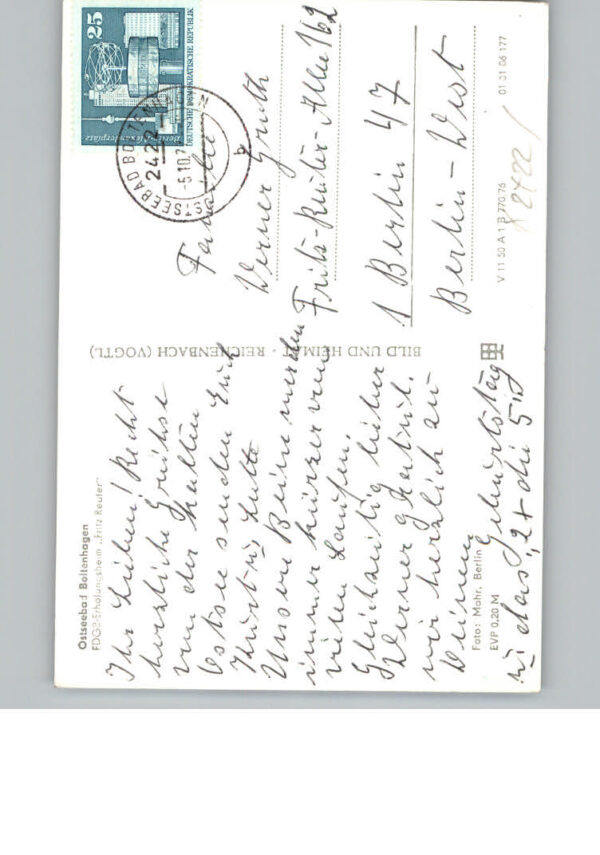 Ostseebad Boltenhagen
FDGB-Erholungsheim „Fritz Reuter"
Ihr Lieben! Recht
herzliche Grüße
von der kalten
Ostsee senden Euch
Unsere Beine werden
immer kürzer vom
vielen Laufen.
Gleichzeitig lieber
Werner gratul.
wir herzlich zu
Deinem Geburtstag
Foto: Mohr, Berlin
EVP 0,20 M
BILD UND HEIMAT · REICHENBACH (VOGTL)
25
DEUTSCHE DEMOKRATISCHE REPUBLIK
Berlin, Alexanderplatz
OSTSEEBAD BOLTENHAGEN
2422
-5.10.7
Familie
Werner Guth
Fritz-Reuter-Allee 162
1 Berlin 47
Berlin-West
V 11 50 A 1 B 770/76
01 01 06 177
2422